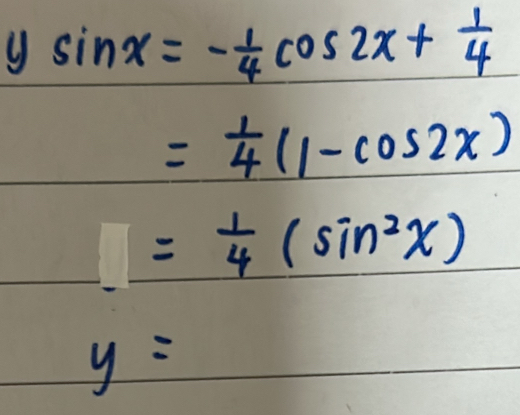 y sinx = -1/4 cos2x + 1/4
= 1/4 (1-cos2x)
= 1/4 (sin²x)
y =